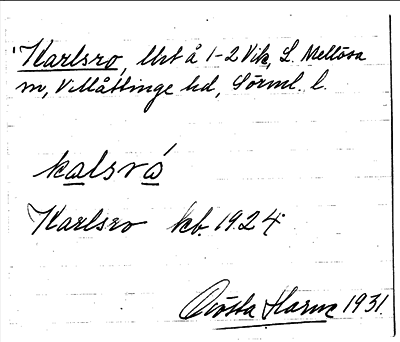 Karlsro, lht å 1-2 Vik, L. Mellösa
sn, Villåttinge hd, Sörml. l.
kalsró
Karlsro kb. 1924
Gösta Harne 1931.